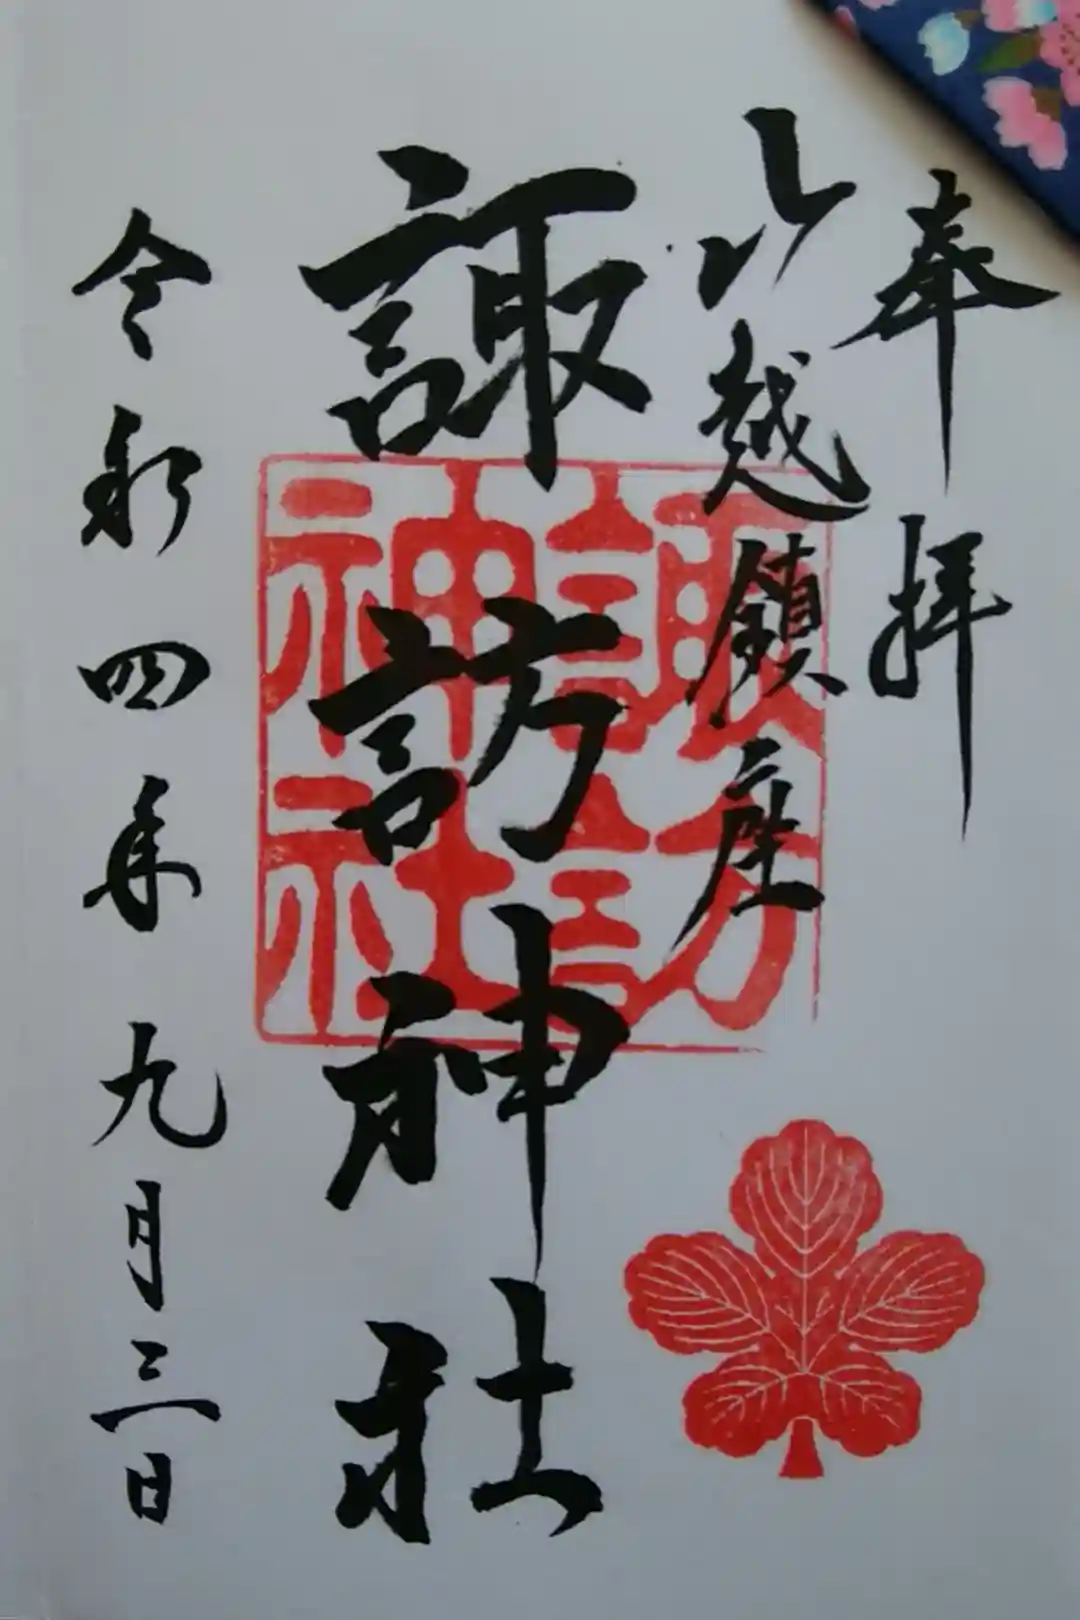 奉拝
越鎮座
諏訪神社
令和四年九月三日
諏訪
神社